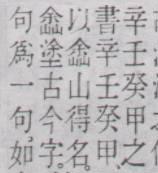 辛壬癸甲之
書辛壬癸甲、
以嵞山得名。
嵞塗古今字。
句爲一句。如